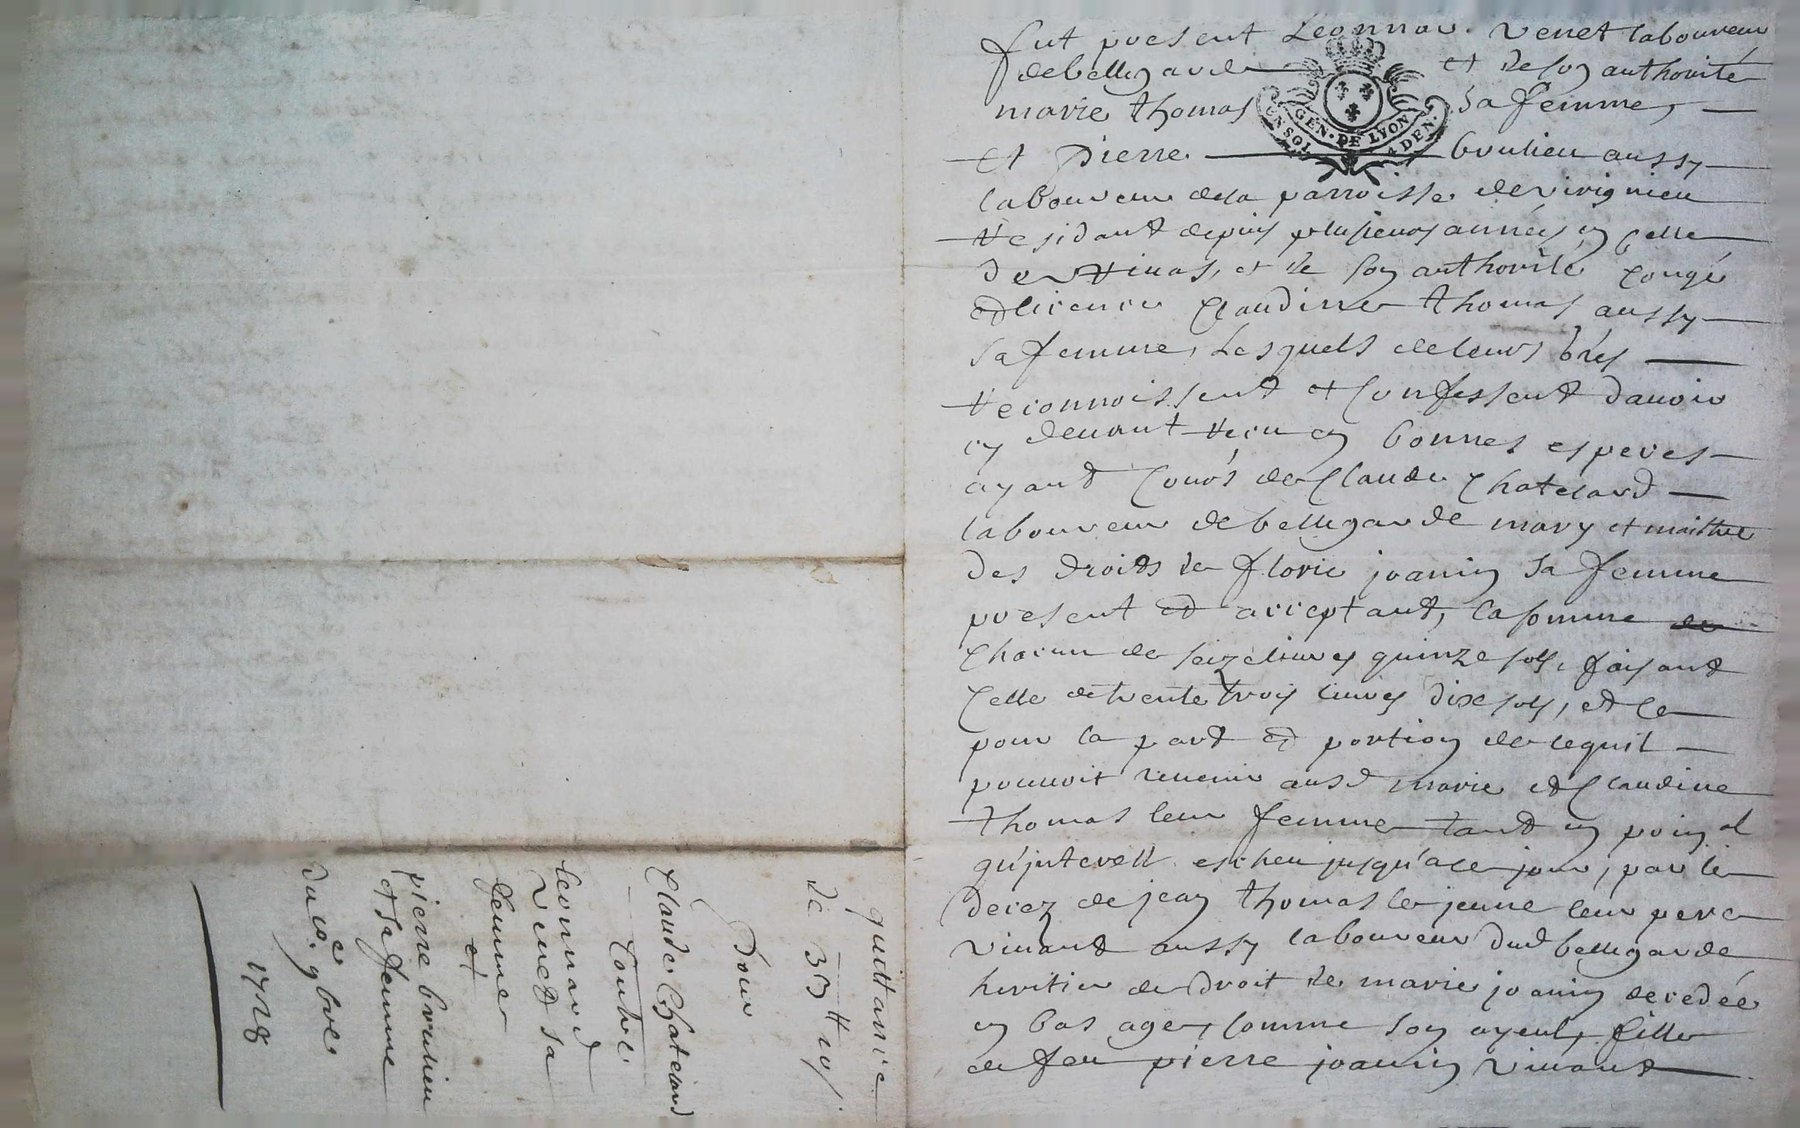 fut present Leonnar. Venet laboureur
de bellegarde et de son authorité
marie thomas sa femme,
GEN. DE LYON
UN SOL 4 DEN.
et pierre brulieu aussy
laboureur de la parroisse de virignieu
residant depuis plusieurs années en celle
de rivas, et de son authorité congé
et licence Claudine thomas aussy
sa femme, Lesquels de leurs grés
reconnoissent et confessent d'auoir
cy deuant recu en bonnes especes
ayant cours de Claude Chatelard
laboureur de bellegarde mary et maithre
des droits de florie joanin sa femme
present et acceptant, la somme
chacun de seize liures quinze sols, faisant
celle de trente trois liures dix sols, et ce
pour la part et portion de ce quil
pouuoit reuenir ausd marie et Claudine
thomas leur femme tant en poin al
qu'jnterest escheu jusqu'a ce jour, par le
decez de jean thomas le jeune leur pere
viuant aussy laboureur dud bellegarde
heritier de droit de marie joanin decedée
en bas age, comme son ayeul, fille
de feu pierre joanin viuant
quittance
de 33 ₶ 10 s.
Pour
Claude Chatelard
Contre
leonnard
Venet sa
femme
et
pierre brulieu
et sa femme
du 9bre
1728